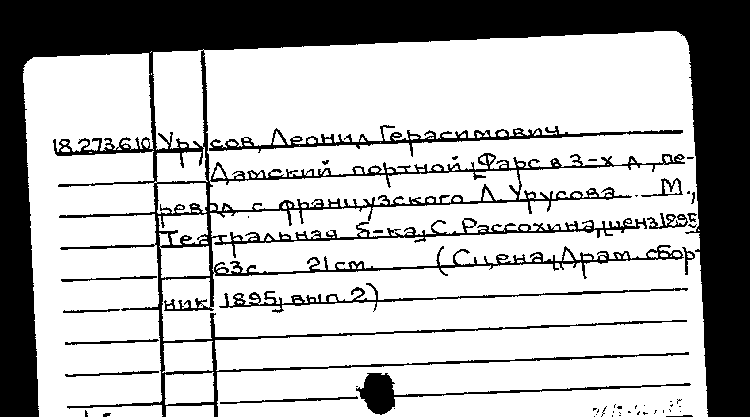 18.273.6.10 Урусов, Леонид Герасимович.
Дамский портной. Фарс в 3-х д., пе-
ревод с французского Л. Урусова. М.,
Театральная б-ка, С. Рассохина, ценз. 1895
63 с. 21 см. (Сцена. Драм. сбор-
ник 1895, вып. 2)